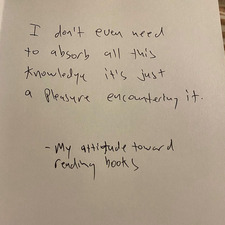 I don't even need
to absorb all this
knowledge it's just
a pleasure encountering it.
- My attitude toward
reading books